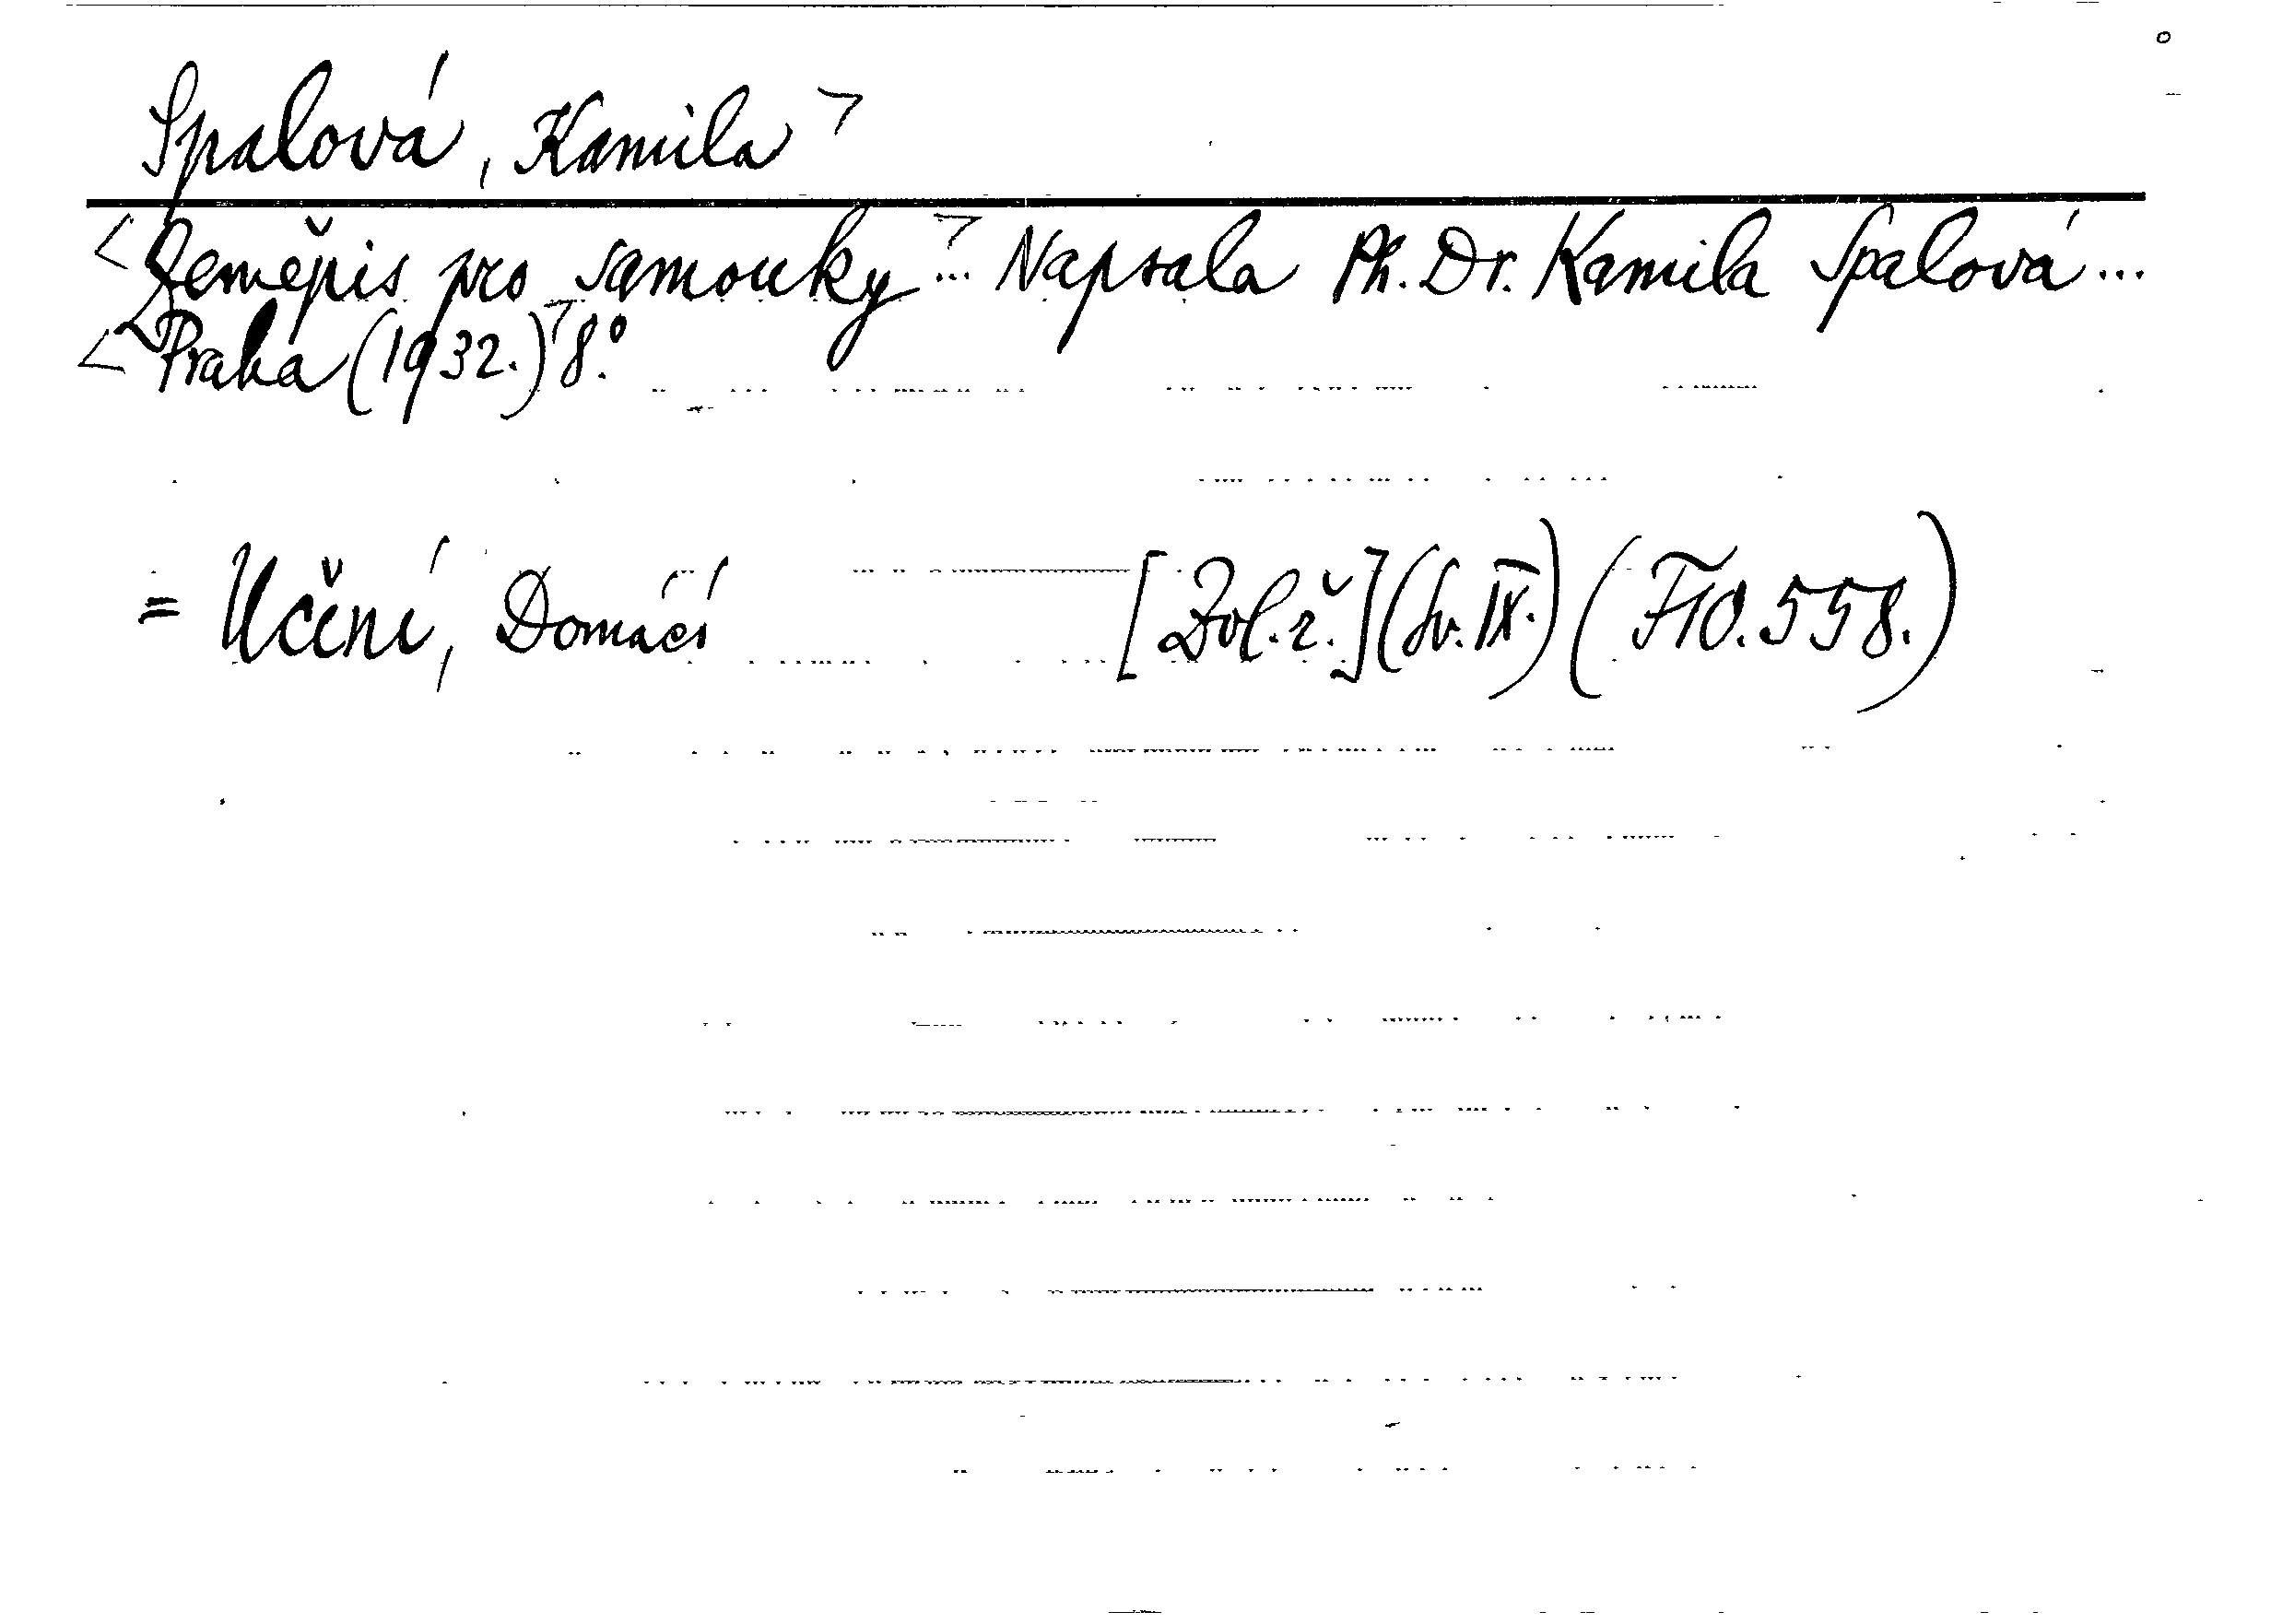 Spalová, Kamila
Zeměpis pro samouky ... Napsala Ph. Dr. Kamila Spalová ...
Praha (1932.) 8.°
= Učení, Domácí [Zvl. ř.] (Sv. IX.) (F10.558.)